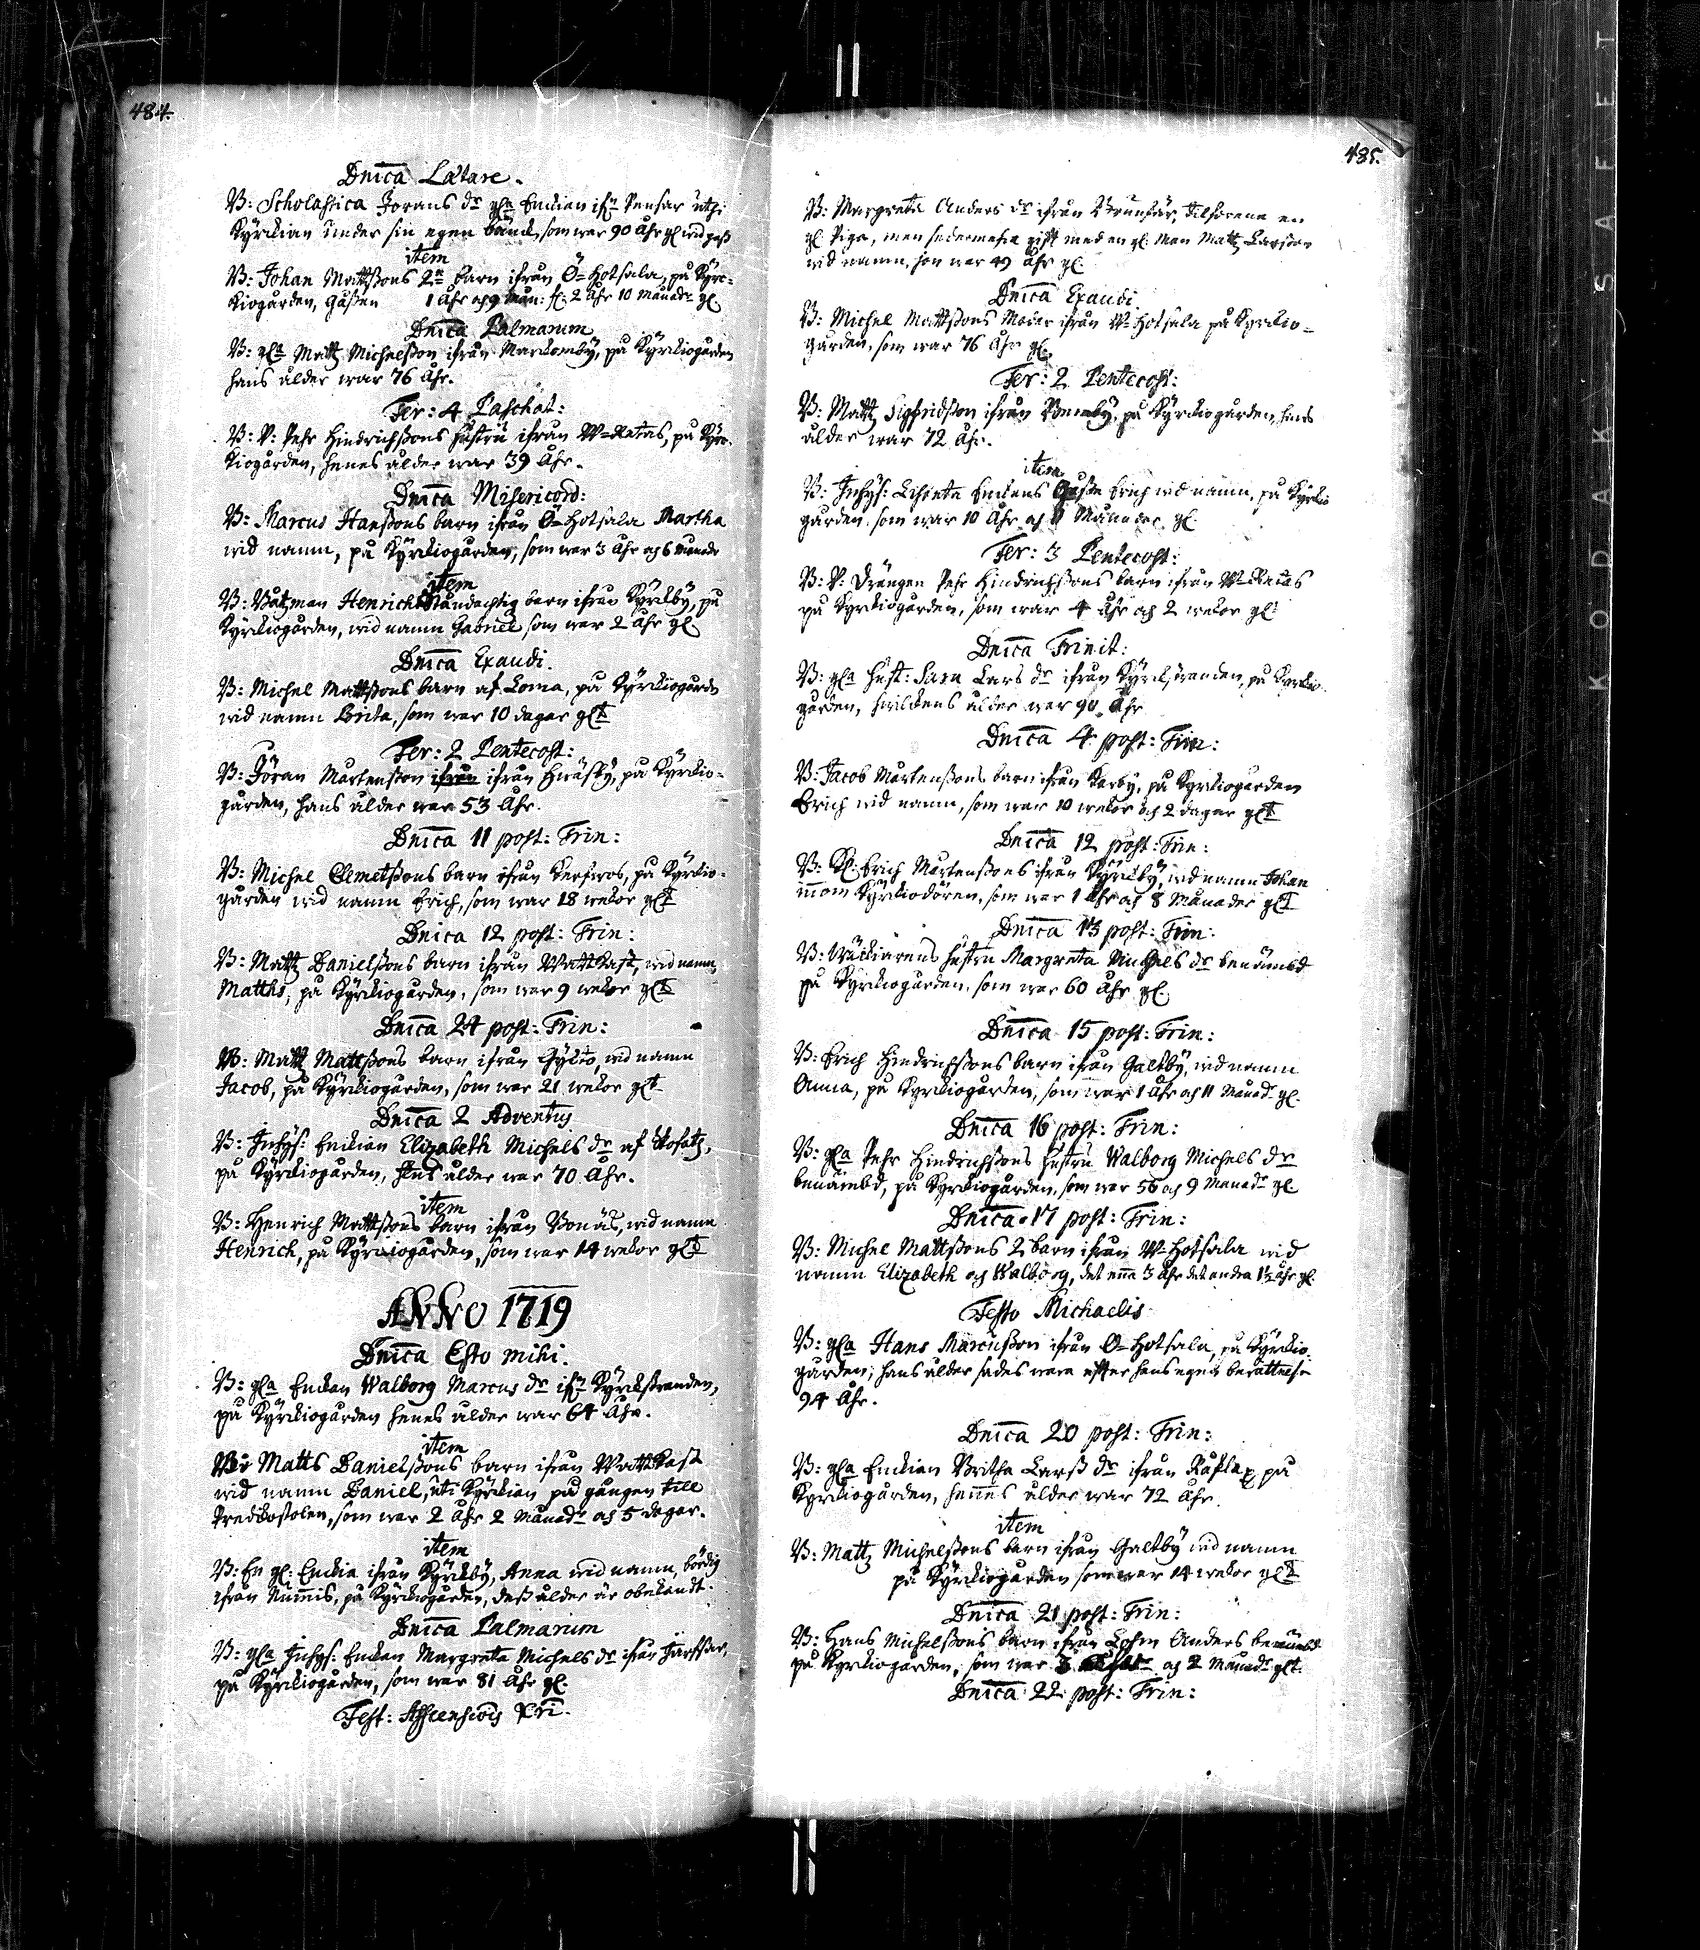 484.
Dnica Lætare.
B: Scholastica Jörans dr gla Enckian ifrn Pensar uthi
Kyrckian under sin egen bänck, som war 90 Åhr gl wid pass
item
B: Johan Mattssons 2ne barn ifrån Ö=Hotsala, på Kyrc-
kiogården, Gåssen 1 Åhr och 9 Mån: fl: 2 Åhr 10 Månadr gl.
Dnica Palmarum
B: gla Matz Michelsson ifrån Markomby, på Kyrckiogården
hans ålder war 76 Åhr.
Fer: 4 Paschat:
B: Pehr Hindrichssons hustru ifrån W=Retais, på Kyrc-
kiogården, henes ålder war 39 Åhr.
Dnica Misericord:
B: Marcus Hanssons barn ifrån Ö=Hotsala Martha
wid namn, på Kyrckiogården, som war 3 Åhr och 6 månadr
item
B: Båtzman Henrich Måndachtig barn ifrån Kyrckby, på
Kyrckiogården, wid namn Gabriel som war 2 Åhr gl.
Dnica Exaudi.
B: Michel Mattssons barn af Loma, på Kyrckiogården
wid namn Brita, som war 10 dagar glt
Fer: 2 Pentecost:
B: Jöran Mårtensson ifrån ifrån Hwäsby, på Kyrckio-
gården, hans ålder war 53 Åhr.
Dnica 11 post: Trin:
B: Michel Clemetssons barn ifrån Kerfwos, på Kyrckio-
gården wid namn Erich, som war 18 wekor glt
Dnica 12 post: Trin:
B: Mattz Danielssons barn ifrån Wattkast, wid namn
Matths, på Kyrckiogården, som war 9 wekor glt
Dnica 24 post: Trin:
B: Mattz Mattssons barn ifrån Gyltö, wid namn
Jacob, på Kyrckiogården, som war 21 wekor glt
Dnica 2 Adventus
B: Inhys: Enckian Elizabeth Michels dr af
på Kyrckiogården, hens ålder war 70 Åhr.
item
B: Henrich Mattssons barn ifrån Bonäs, wid namn
Henrich, på Kyrckiogården, som war 14 wekor glt
ANNO 1719
Dnica Esto mihi.
B: gla Enckan Walborg Marcus dr ifrn Kyrckstranden,
på Kyrckiogården henes ålder war 64 Åhr.
item
B: Matts Danielssons barn ifrån Wattkast
wid namn Daniel, uti Kyrckian på gången till
Predikostolen, som war 2 Åhr 2 Månadr och 5 dagar.
item
B: En gl: Enckia ifrån Kyrckby, Anna wid namn, bördig
ifrån Nummis, på Kyrckiogården, dess ålder är obekandt.
Dnica Palmarum
B: gla Inhys: Enckan Margreta Michels dr ifrån
på Kyrckiogården, som war 81 Åhr gl.
Fest: Ascensiois Xri.
485.
B: Margreta Anders dr ifrån Brunskär, tilförene en
gl. Piga, men sedermehra gift med en gl. Man Matz Larsson
wid namn, hon war 49 Åhr gl
Dnica Exaudi
B: Michel Mattssons Moder ifrån W=Hotsala på Kyrckio-
gården, som war 76 Åhr gl.
Fer: 2 Pentecost:
B: Mattz Sigfridsson ifrån Benby, på Kyrckiogården, hans
ålder war 72 Åhr.
item
B: Inhys: Lisbeta Enckans Gosse Erich wid namn, på Kyrckio
gården, som war 10 Åhr och 11 Månader gl.
Fer: 3 Pentecost:
B: Drängen Pehr Hindrichssons barn ifrån W=Retais
på Kyrckiogården, som war 4 Åhr och 2 wekor gl:
Dnica Trinit:
B: gla hust: Sara Lars dr ifrån Kyrckstranden, på Kyrckio-
gården, hwilckens ålder war 90 Åhr
Dnica 4 post: Trin:
B: Jacob Mårtenssons barn ifrån Korby, på Kyrckiogården
Erich wid namn, som war 10 wekor och 2 dagar glt
Dnica 12 post: Trin:
B: Erich Mårtenssons ifrån Kyrckby, wid namn Johan
innom Kyrckiodören, som war 1 Åhr och 8 Månader glt
Dnica 13 post: Trin:
B: hustru Margreta dr benämbd
på Kyrckiogården, som war 60 Åhr gl.
Dnica 15 post: Trin:
B: Erich Hindrichssons barn ifrån Galtby, wid namn
Anna, på Kyrckiogården, som war 1 Åhr och 11 Månadr gl.
Dnica 16 post: Trin:
B: gla Pehr Hindrichssons hustru Walborg Michels dr
benämbd, på Kyrckiogården, som war 56 och 9 Månadr gl
Dnica 17 post: Trin:
B: Michel Mattssons 2 barn ifrån W=Hotsala wid
namn Elizabeth och Walborg, det ena 3 Åhr det andra 1½ Åhr gl.
Festo Michaelis
B: gla Hans Marcusson ifrån Ö=Hotsala, på Kyrckio-
gården, hans ålder sades wara efter hans egen berättelse
94 Åhr.
Dnica 20 post: Trin:
B: gla Enckian Britha Larss dr ifrån Råslax på
Kyrckiogården, hennes ålder war 72 Åhr.
item
B: Mattz Michelssons barn ifrån Galtby wid namn
på Kyrckiogården som war 14 wekor glt
Dnica 21 post: Trin:
B: Hans Michelssons barn ifrån Lohm Anders benämbd
på Kyrckiogården, som war och 2 Månadr glt.
Dnica 22 post: Trin:
KODAK SAFET